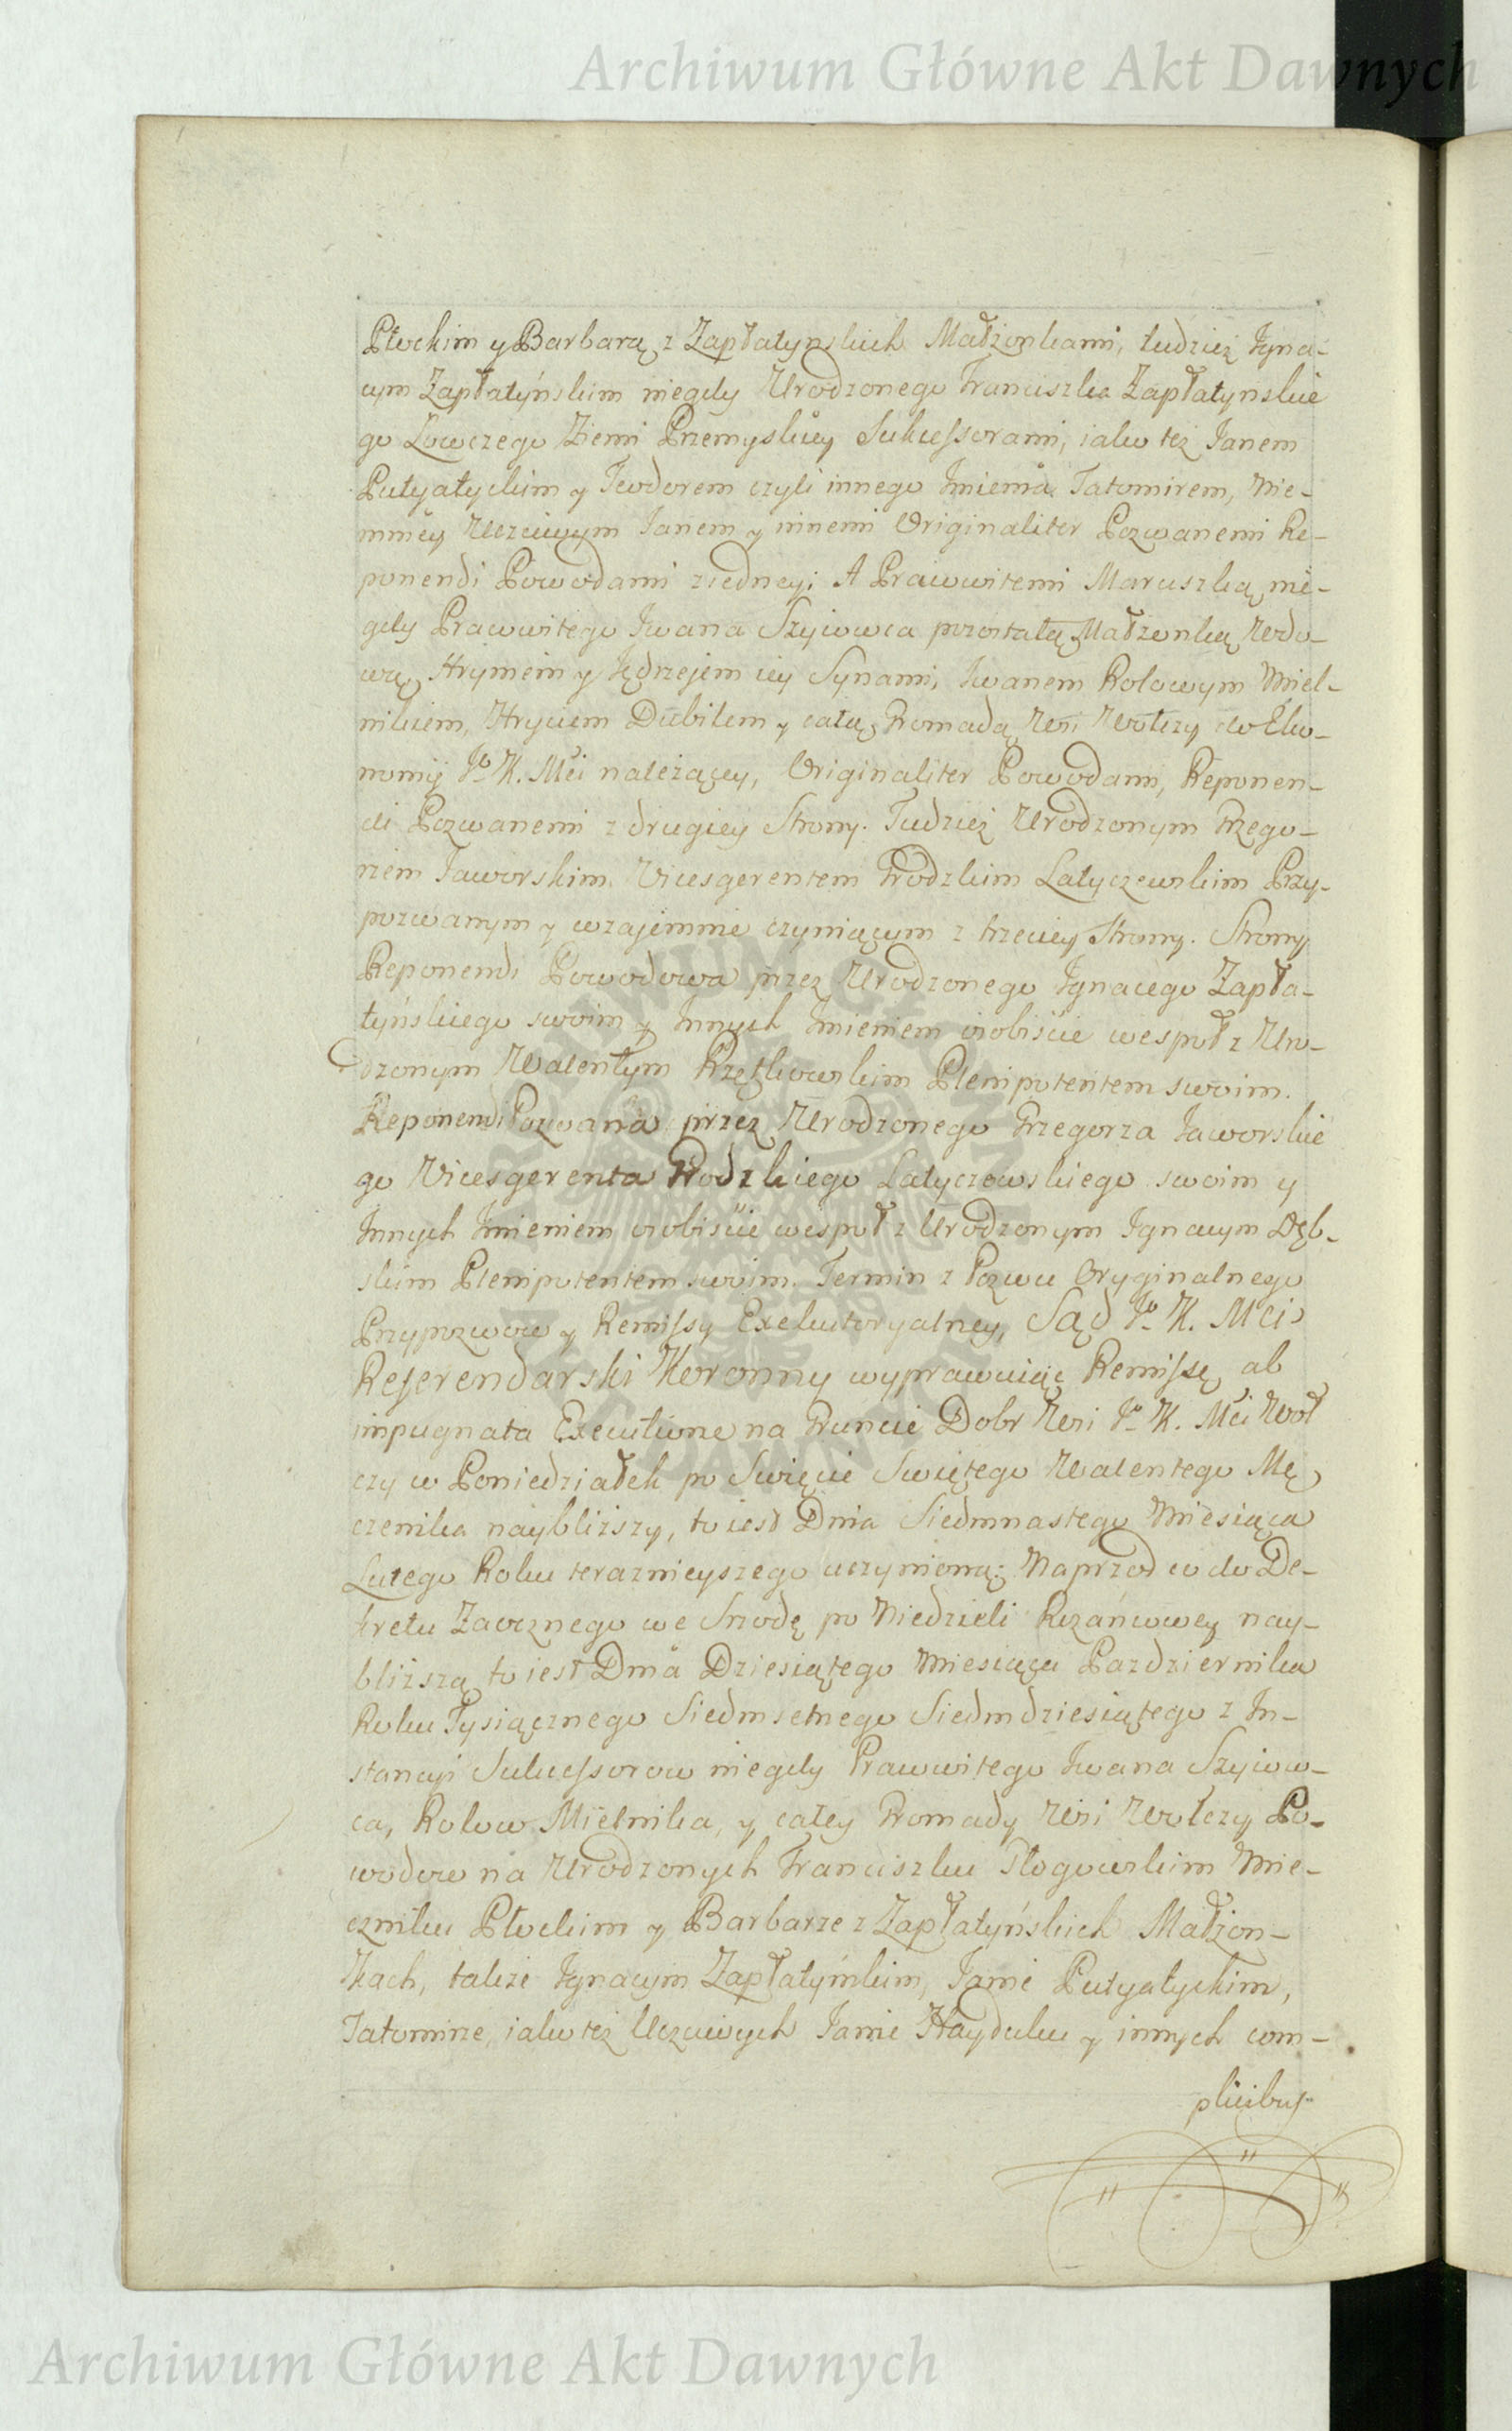 Archiwum Główne Akt Dawnych
Płockim y Barbarą z Zapłatynskich Małżonkami, tudziesz Igna-
cym Zapłatyńskim niegdy Urodzonego Franciszka Zapłatynskie
go Łowczego Ziemi Przemyskiey Sukcessorami, iako też Janem
Putyatyckim y Teodorem czyli innego Imienia Tatomirem, Nie-
mniey Uczciwym Janem y innemi Originaliter Pozwanemi Re-
ponendi Powodami z iedney; A Prawowitemi Maruszką nie-
gdy Prawowitego Iwana Szyiowca pozostałą Małżonką Wdo-
wą, Hrymem y Jędrzejem iey Synami, Iwanem Kołowym Miel-
nikiem, Hryciem Dubilem y całą Gromadą Wsi Wołczy do Eko-
nomij Jo K. Mci należącey, Originaliter Powodami, Reponen-
di Pozwanemi z drugiey Strony. Tudzież Urodzonym Grzego-
rzem Jaworskim Vicesgerentem Grodzkim Latyczewskim Przy-
pozwanym y wzajemnie czyniącym z trzeciey Strony. Strony
Reponendi Powodowa przez Urodzonego Ignacego Zapła-
tyńskiego swoim y Innych Imieniem osobiście wespoł z Uro-
dzonym Walentym Plenipotentem swoim.
Reponendi Pozwana przez Urodzonego Grzegorza Jaworskie
go Vicesgerenta Grodzkiego Latyczewskiego swoim y
Innych Imieniem osobiście wespoł z Urodzonym Ignacym Dęb-
skim Plenipotentem swoim. Termin z Pozwu Oryginalnego
Przypozwow y Remissy Exekutoryalney, Sąd Jo K. Mci
Referendarski Koronny wyprawuiąc Remissę ab
impugnata Executione na Gruncie Dobr Wsi Jo K. Mci Woł
czy w Poniedziałek po Swięcie Swiętego Walentego Mę
czenika naybliższy, to iest Dnia Siedmnastego Miesiąca
Lutego Roku teraznieyszego uczynioną: Naprzod co do De-
kretu Zaocznego we Srzodę po Niedzieli Rożańcowey nay-
bliższą to iest Dnia Dziesiątego Miesiąca Pazdziernika
Roku Tysiącznego Siedmsetnego Siedmdziesiątego z In-
stancyi Sukcessorow niegdy Prawowitego Iwana Szyiow-
ca, Kołow Mielnika, y całey Gromady Wsi Wołczy Po-
wodow na Urodzonych Franciszku Głogowskim Mie-
czniku Płockim y Barbarze z Zapłatyńskich Małżon-
kach, także Ignacym Zapłatyńskim, Janie Putyatyckim,
Tatomirze, iako też Uczciwych Janie Hayduku y innych com-
plicibus
Archiwum Główne Akt Dawnych